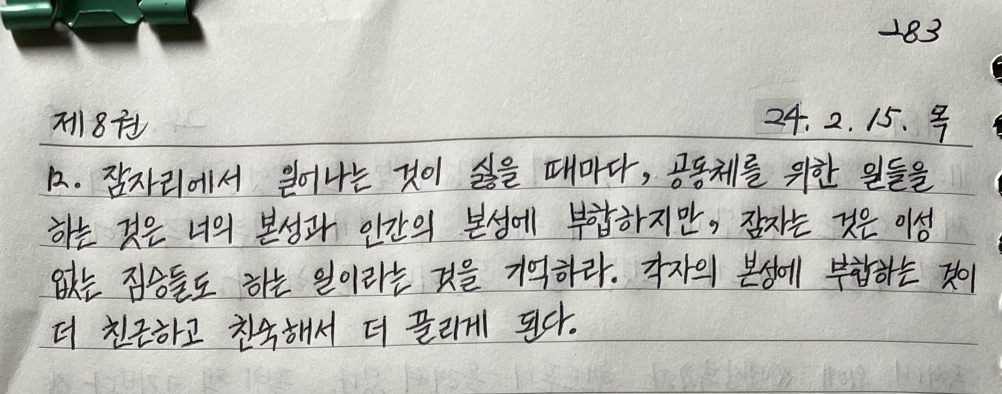 183
제8권 24. 2. 15. 목
12. 잠자리에서 일어나는 것이 싫을 때마다, 공동체를 위한 일들을
하는 것은 너의 본성과 인간의 본성에 부합하지만, 잠자는 것은 이성
없는 짐승들도 하는 일이라는 것을 기억하라. 각자의 본성에 부합하는 것이
더 친근하고 친숙해서 더 끌리게 된다.